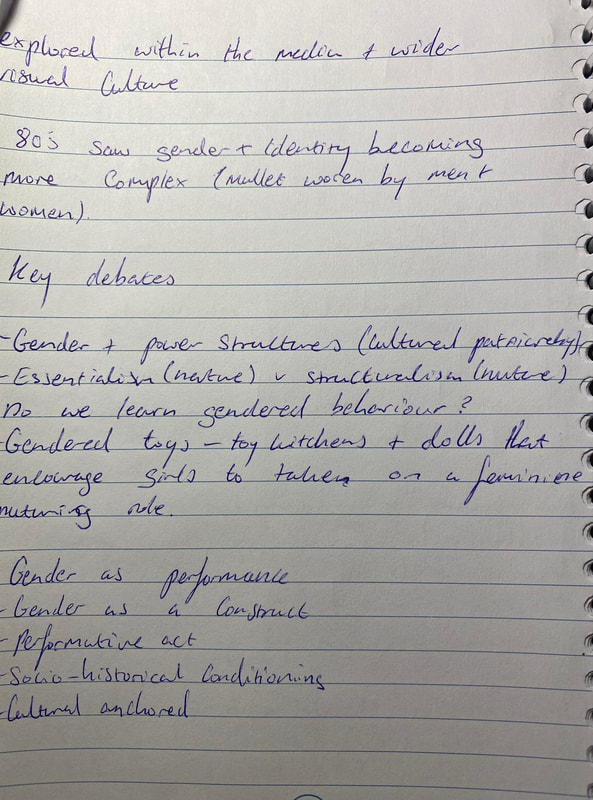 explored within the media + wider
visual Culture
80's saw gender + Identity becoming
more complex (mullet woren by men +
women).
Key debates
-Gender + power structures (cultural patriarchy)
-Essentialism (nature) v structuralism (nurture)
Do we learn gendered behaviour?
-Gendered toys - toy kitchens + dolls that
encourage girls to taken on a feminine
nurturing role.
Gender as performance
-Gender as a Construct
-Performative act
-Socio-historical Conditioning
-Cultural anchored